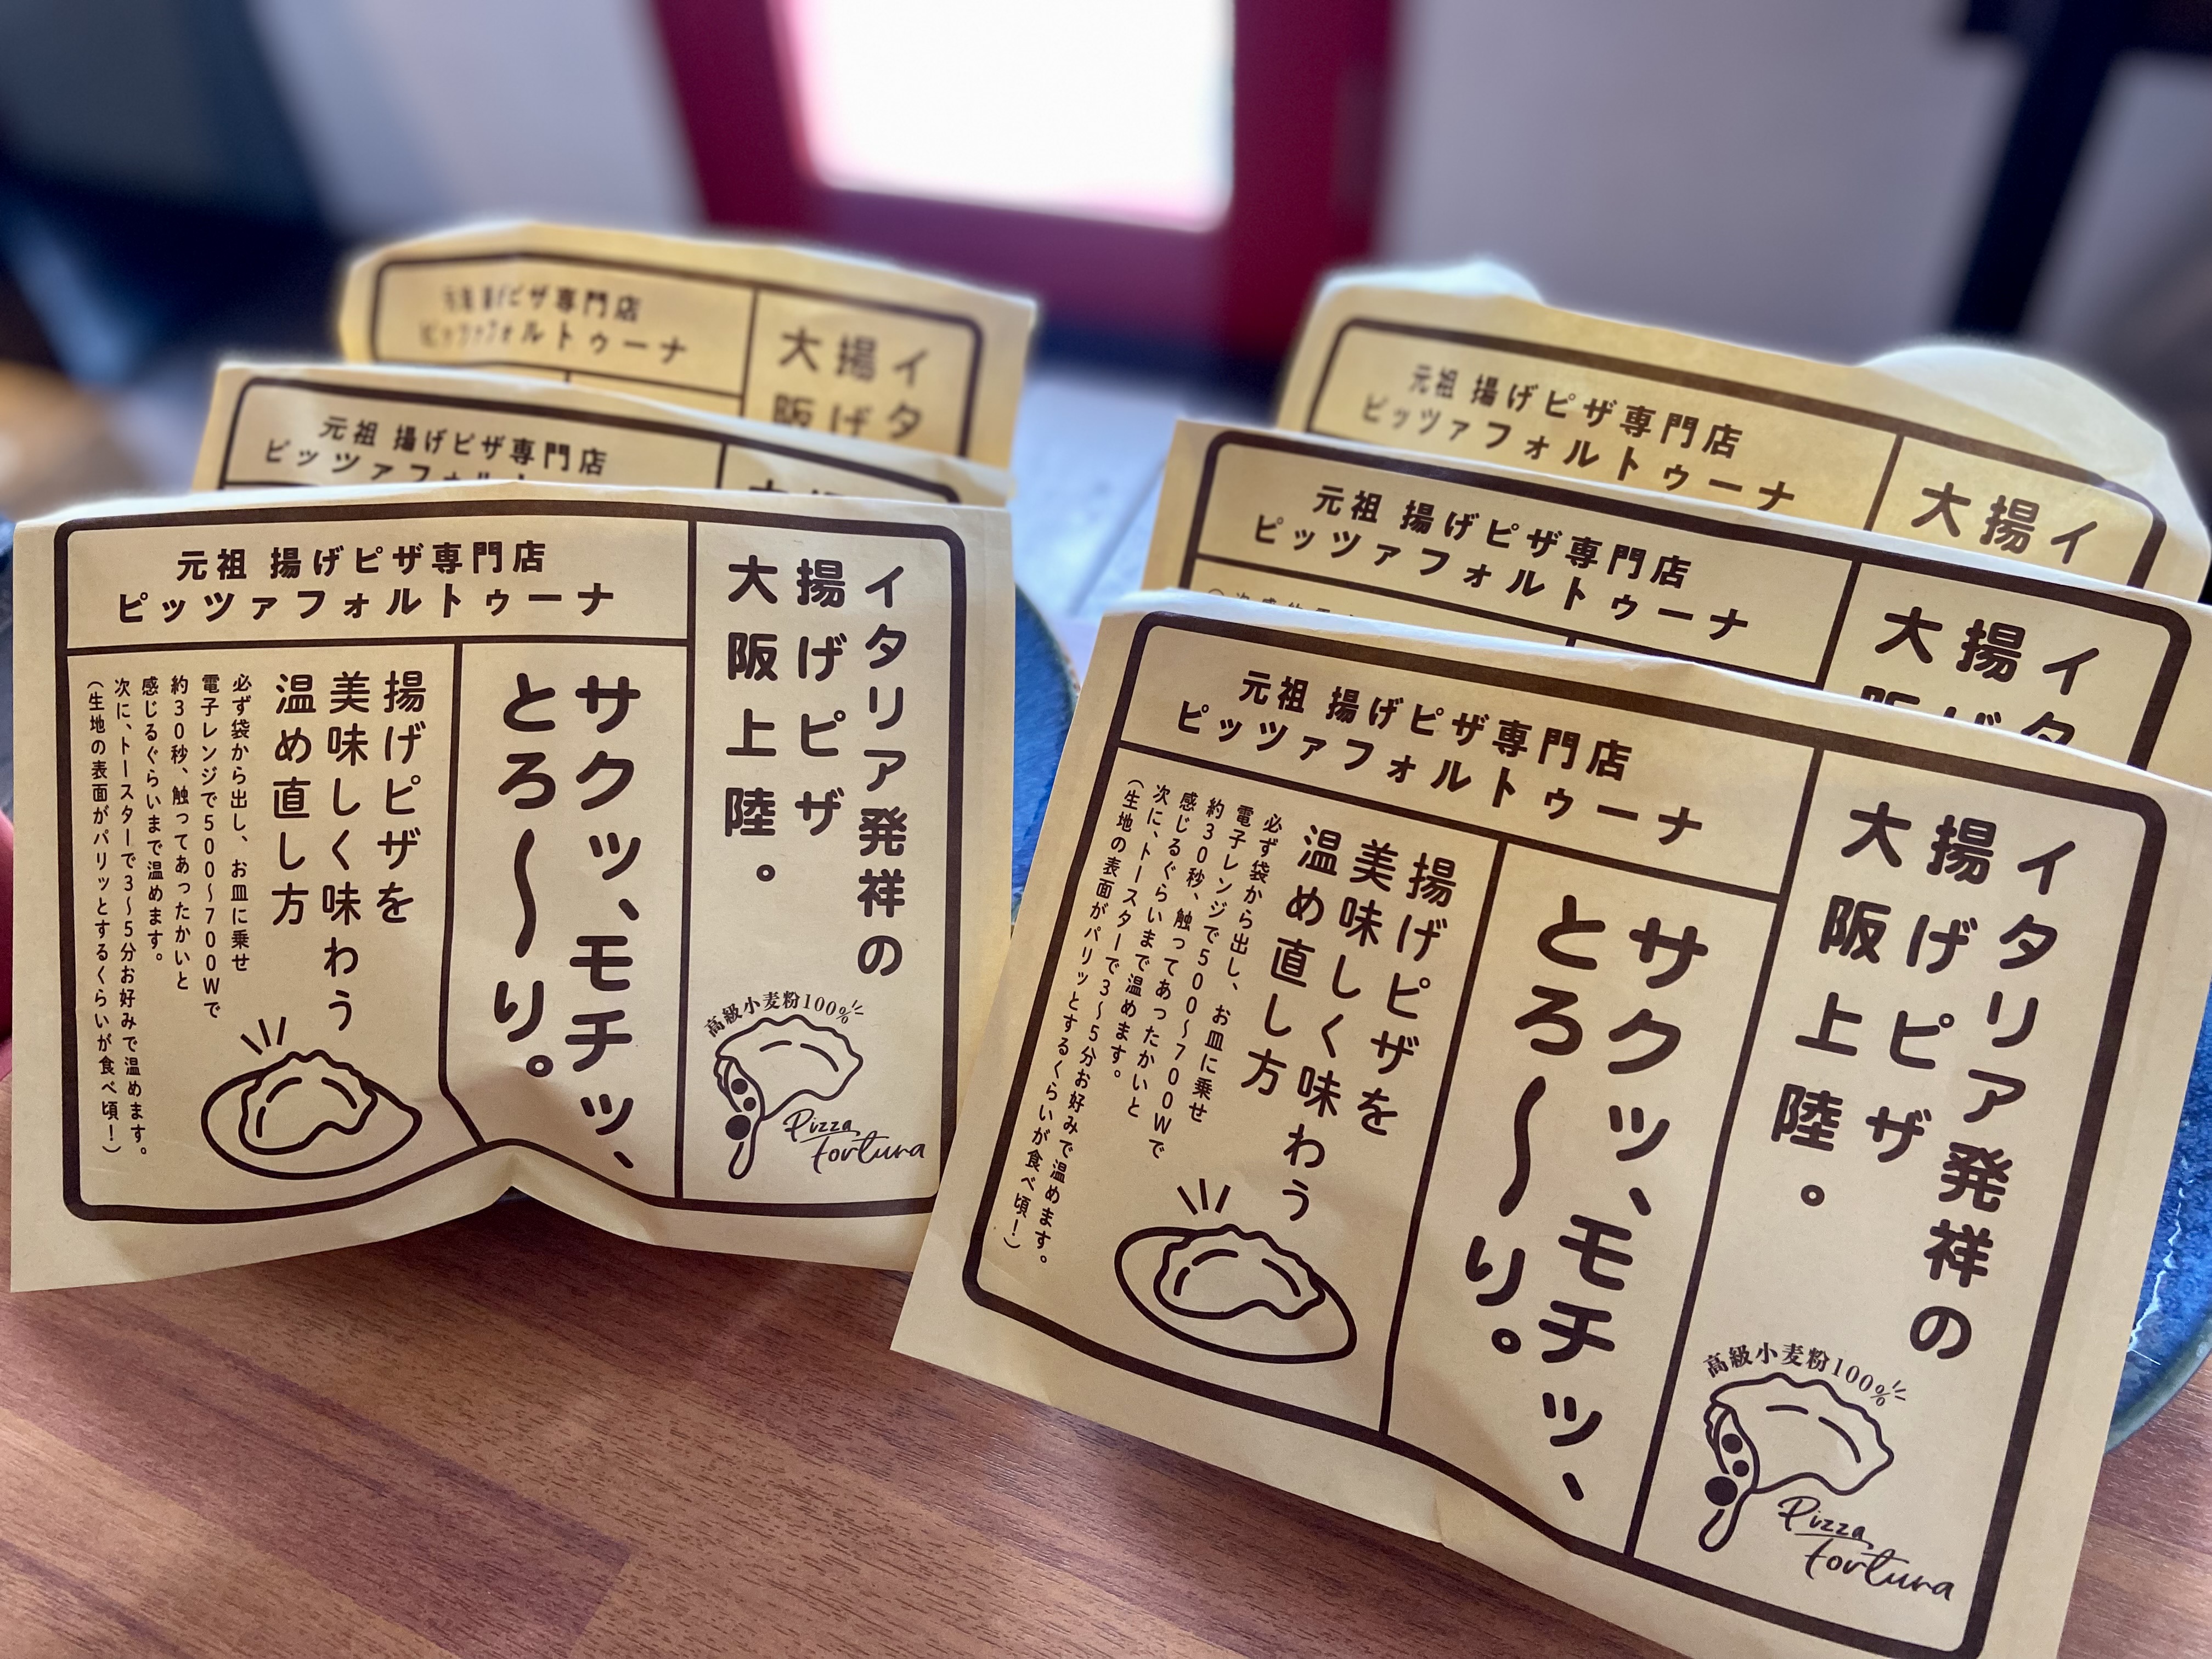 元祖 揚げピザ専門店
ピッツァフォルトゥーナ
イタリア発祥の
揚げピザ
大阪上陸。
高級小麦粉100%
Pizza
fortuna
サクッ、モチッ、
とろ〜〜り。
揚げピザを
美味しく味わう
温め直し方
必ず袋から出し、お皿に乗せ
電子レンジで500〜700Wで
約30秒、触ってあったかいと
感じるぐらいまで温めます。
次に、トースターで3〜5分お好みで温めます。
(生地の表面がパリッとするくらいが食べ頃!)
元祖 揚げピザ専門店
ピッツァフォルトゥーナ
イタリア発祥の
揚げピザ
大阪上陸。
高級小麦粉100%
Pizza
fortuna
サクッ、モチッ、
とろ〜〜り。
揚げピザを
美味しく味わう
温め直し方
必ず袋から出し、お皿に乗せ
電子レンジで500〜700Wで
約30秒、触ってあったかいと
感じるぐらいまで温めます。
次に、トースターで3〜5分お好みで温めます。
(生地の表面がパリッとするくらいが食べ頃!)
元祖 揚げピザ専門店
ピッツァフォルト
元祖 揚げピザ専門店
ピッツァフォルトゥーナ
イタ
揚げ
大阪
元祖 揚げピザ専門店
ピッツァフォルトゥーナ
イタ
揚げ
大阪
元祖 揚げピザ専門店
ピッツァフォルトゥーナ
イ
揚
大